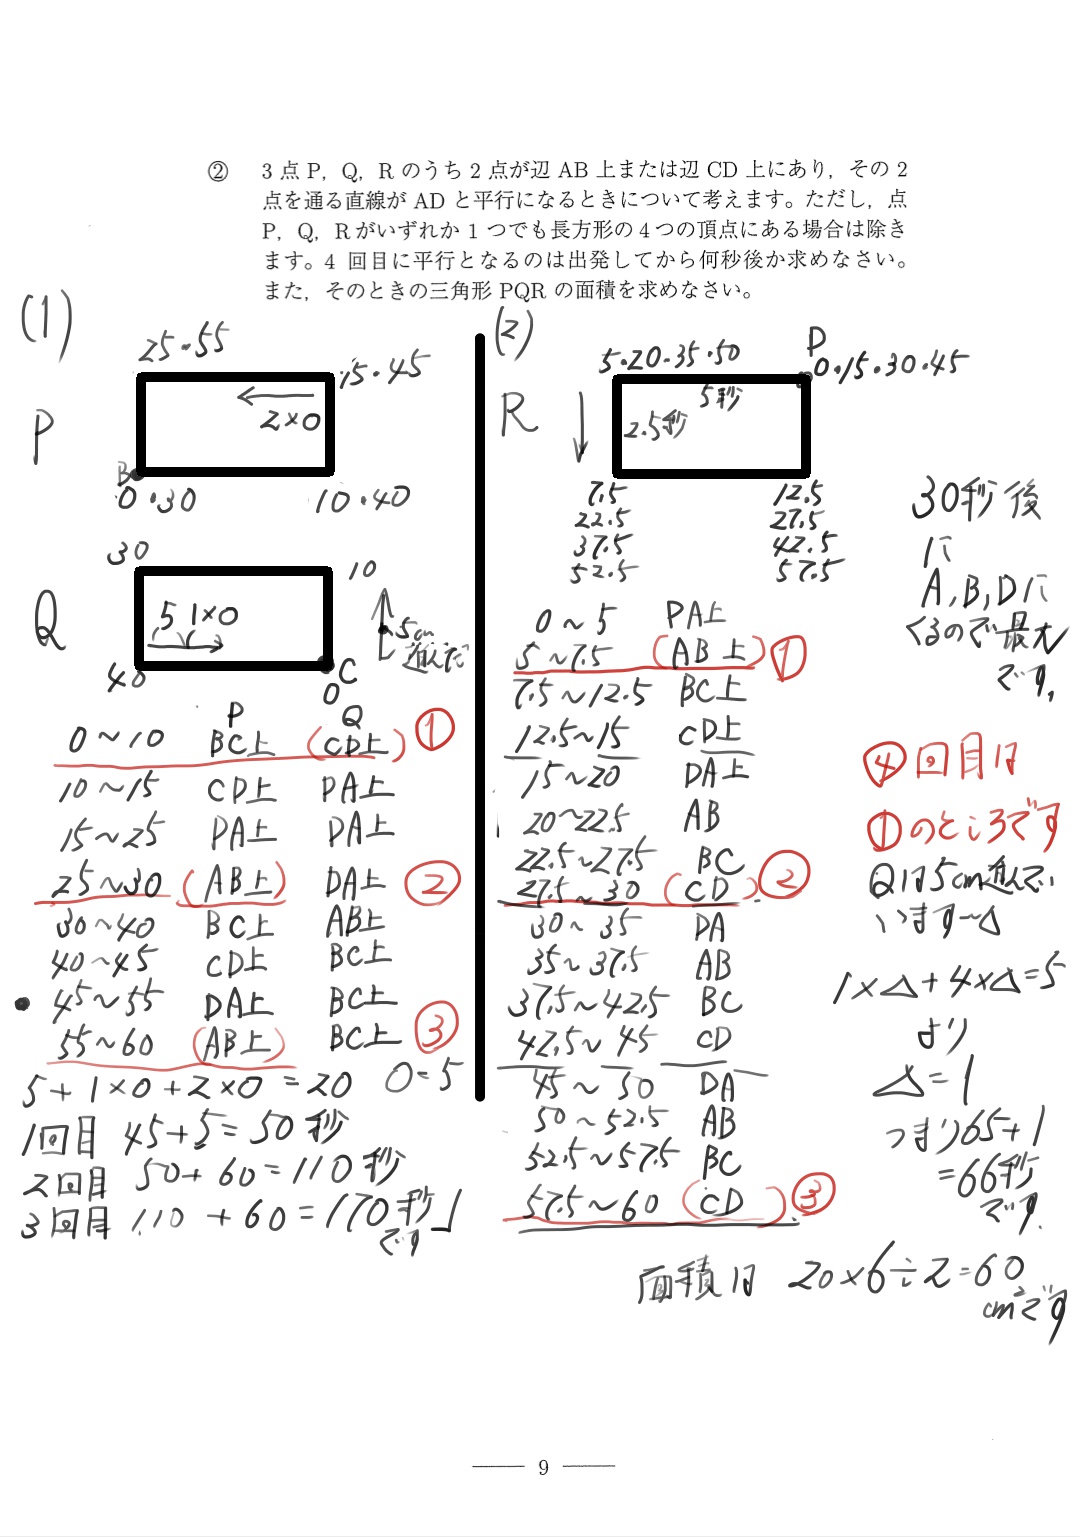 ② 3点P，Q，Rのうち2点が辺AB上または辺CD上にあり，その2
点を通る直線がADと平行になるときについて考えます。ただし，点
P，Q，Rがいずれか1つでも長方形の4つの頂点にある場合は除き
ます。4回目に平行となるのは出発してから何秒後か求めなさい。
また，そのときの三角形PQRの面積を求めなさい。
(1)
25・55
15・45
P
2×0
B
0・30
10・40
30
10
Q
5 1×0
5cm
進んだ
40
C
0
P Q
0～10 BC上 (CD上) ①
10～15 CD上 DA上
15～25 DA上 DA上
25～30 (AB上) DA上 ②
30～40 BC上 AB上
40～45 CD上 BC上
45～55 DA上 BC上
55～60 (AB上) BC上 ③
5+1×0+2×0=20 0=5
1回目 45+5=50秒
2回目 50+60=110秒
3回目 110+60=170秒
です
(2)
5・20・35・50
P
0・15・30・45
R
5秒
2.5秒
7.5 12.5
22.5 27.5
37.5 42.5
52.5 57.5
0～5 DA上
5～7.5 (AB上) ①
7.5～12.5 BC上
12.5～15 CD上
15～20 DA上
20～22.5 AB
22.5～27.5 BC
27.5～30 (CD) ②
30～35 DA
35～37.5 AB
37.5～42.5 BC
42.5～45 CD
45～50 DA
50～52.5 AB
52.5～57.5 BC
57.5～60 (CD) ③
30秒後
に
A,B,Dに
くるので最大
です。
④回目は
①のところです
Qは5cm進んで
います～△
1×△+4×△=5
より
△=1
つまり65+1
=66秒
です.
面積は 20×6÷2=60
cm²です
9